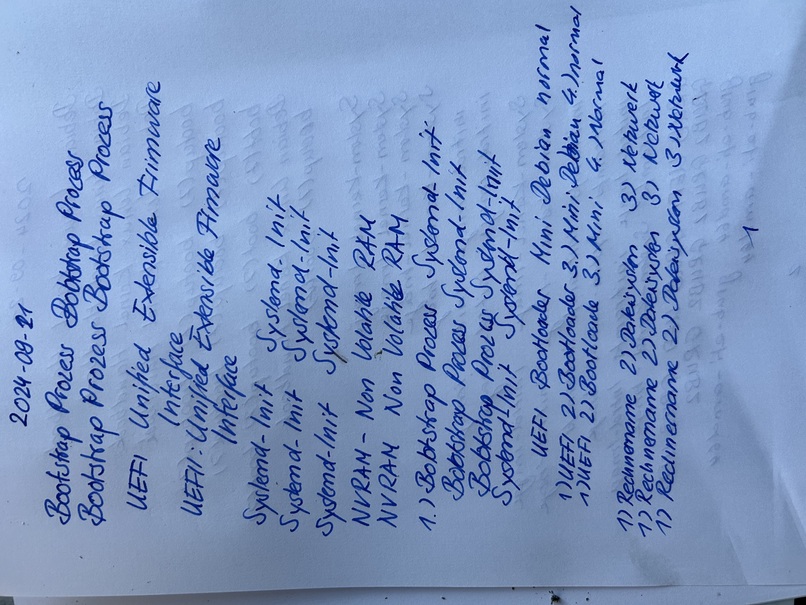 2024-09-21
Bootstrap Prozess Bootstrap Process
Bootstrap Prozess Bootstrap Process
UEFI Unified Extensible Firmware
Interface
UEFI: Unified Extensible Fimwcre
Interface
Systemd-Init Systemd-Init
Systemd-Init Systemd-Init
Systemd-Init Systemd-Init
NVRAM - Non Volatile RAM
NVRAM Non Volatile RAM
1.) Bootstrap Process Systemd-Init
Bootstrap Process Systemd-Init
Bootstrap Process Systemd-Init
Systemd-Init Systemd-Init
UEFI Bootloader Mini Debian normal
1) UEFI 2) Bootloader 3.) Mini Debian 4.) normal
1) UEFI 2) Bootloade 3.) Mini 4.) Normal
1) Rechnername 2) Dateisystem 3) Netzwerk
1) Rechnername 2) Dateisystem 3) Netzwerk
1) Rechnername 2) Dateisystem 3) Netzwerk
1